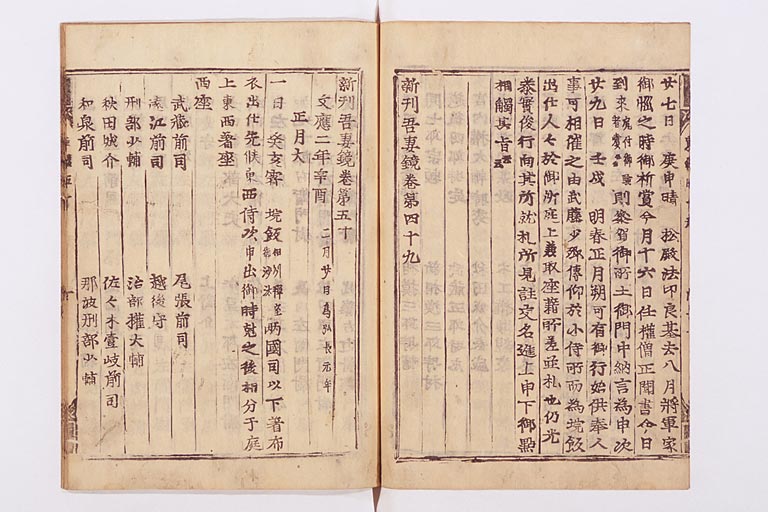 廿七日 庚申晴 松殿法印良基去八月將軍家
御惱之時御祈賞今月十六日任權僧正聞書今日
到來 則參賀御所土御門中納言為申次
廿九日 壬戌 明春正月朔可有御行始供奉人
事可相催之由武藤少卿傳仰於小侍所而為埦飯
出仕人々於御所庭上義取座籍貯差并札也仍光
泰實俊行向其所就札所見註交名進上申下御點
相觸其旨云云
新刊吾妻鏡卷第四十九
新刊吾妻鏡卷第五十
文應二年辛酉 二月廿日為弘長元年
正月大
一日 癸亥霽 埦飯 兩國司以下著布
衣出仕先候東西侍次申出御時尅之後相分于庭
上東西著座
西座
武藏前司 尾張前司
遠江前司 越後守
刑部少輔 治部權大輔
秋田城介 佐々木壹岐前司
和泉前司 那波刑部少輔